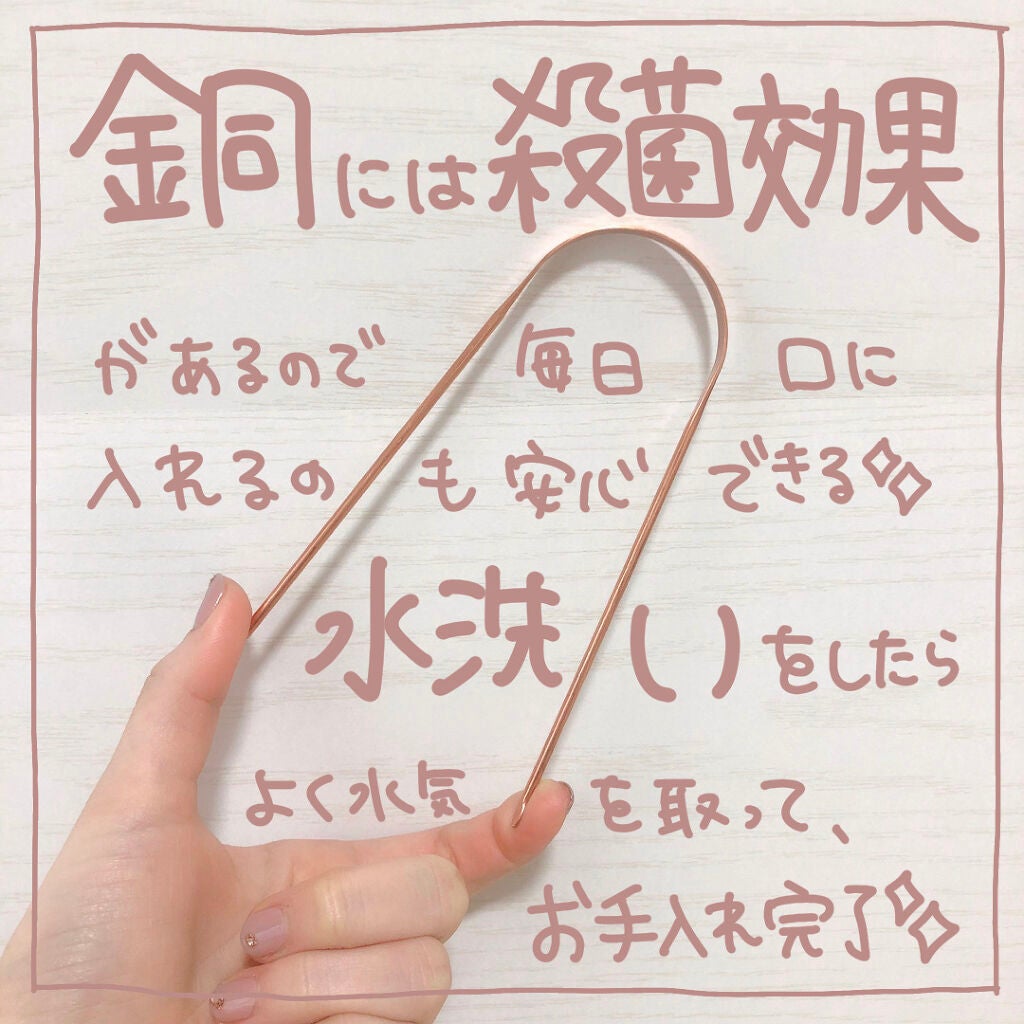 銅には殺菌効果
があるので 毎日 口に
入れるの も 安心 できる
水洗いをしたら
よく水気 を取って、
お手入れ完了